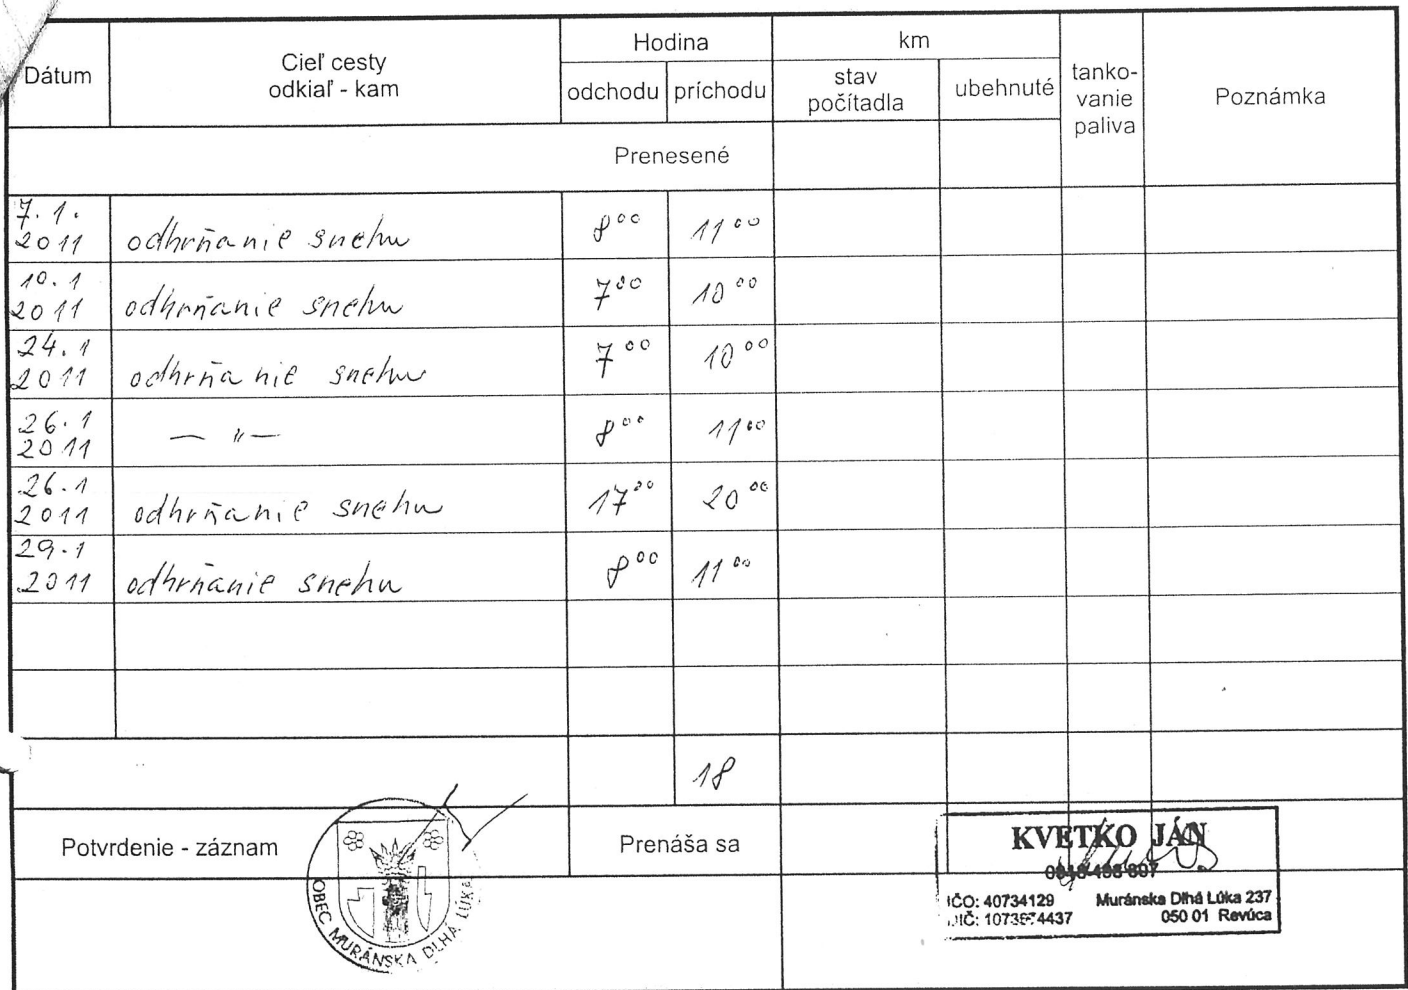 Dátum Cieľ cesty odkiaľ - kam Hodina km tanko-vanie paliva Poznámka
odchodu príchodu stav počítadla ubehnuté
Prenesené
7.1. 2011 odhrňanie snehu 8⁰⁰ 11⁰⁰
10.1 2011 odhrňanie snehu 7⁰⁰ 10⁰⁰
24.1 2011 odhrňanie snehu 7⁰⁰ 10⁰⁰
26.1 2011 — " — 8⁰⁰ 11⁰⁰
26.1 2011 odhrňanie snehu 17⁰⁰ 20⁰⁰
29.1 2011 odhrňanie snehu 8⁰⁰ 11⁰⁰
18
Potvrdenie - záznam Prenáša sa
OBEC MURÁNSKA DLHÁ LÚKA
KVETKO JÁN
IČO: 40734129 Muránska Dlhá Lúka 237
050 01 Revúca